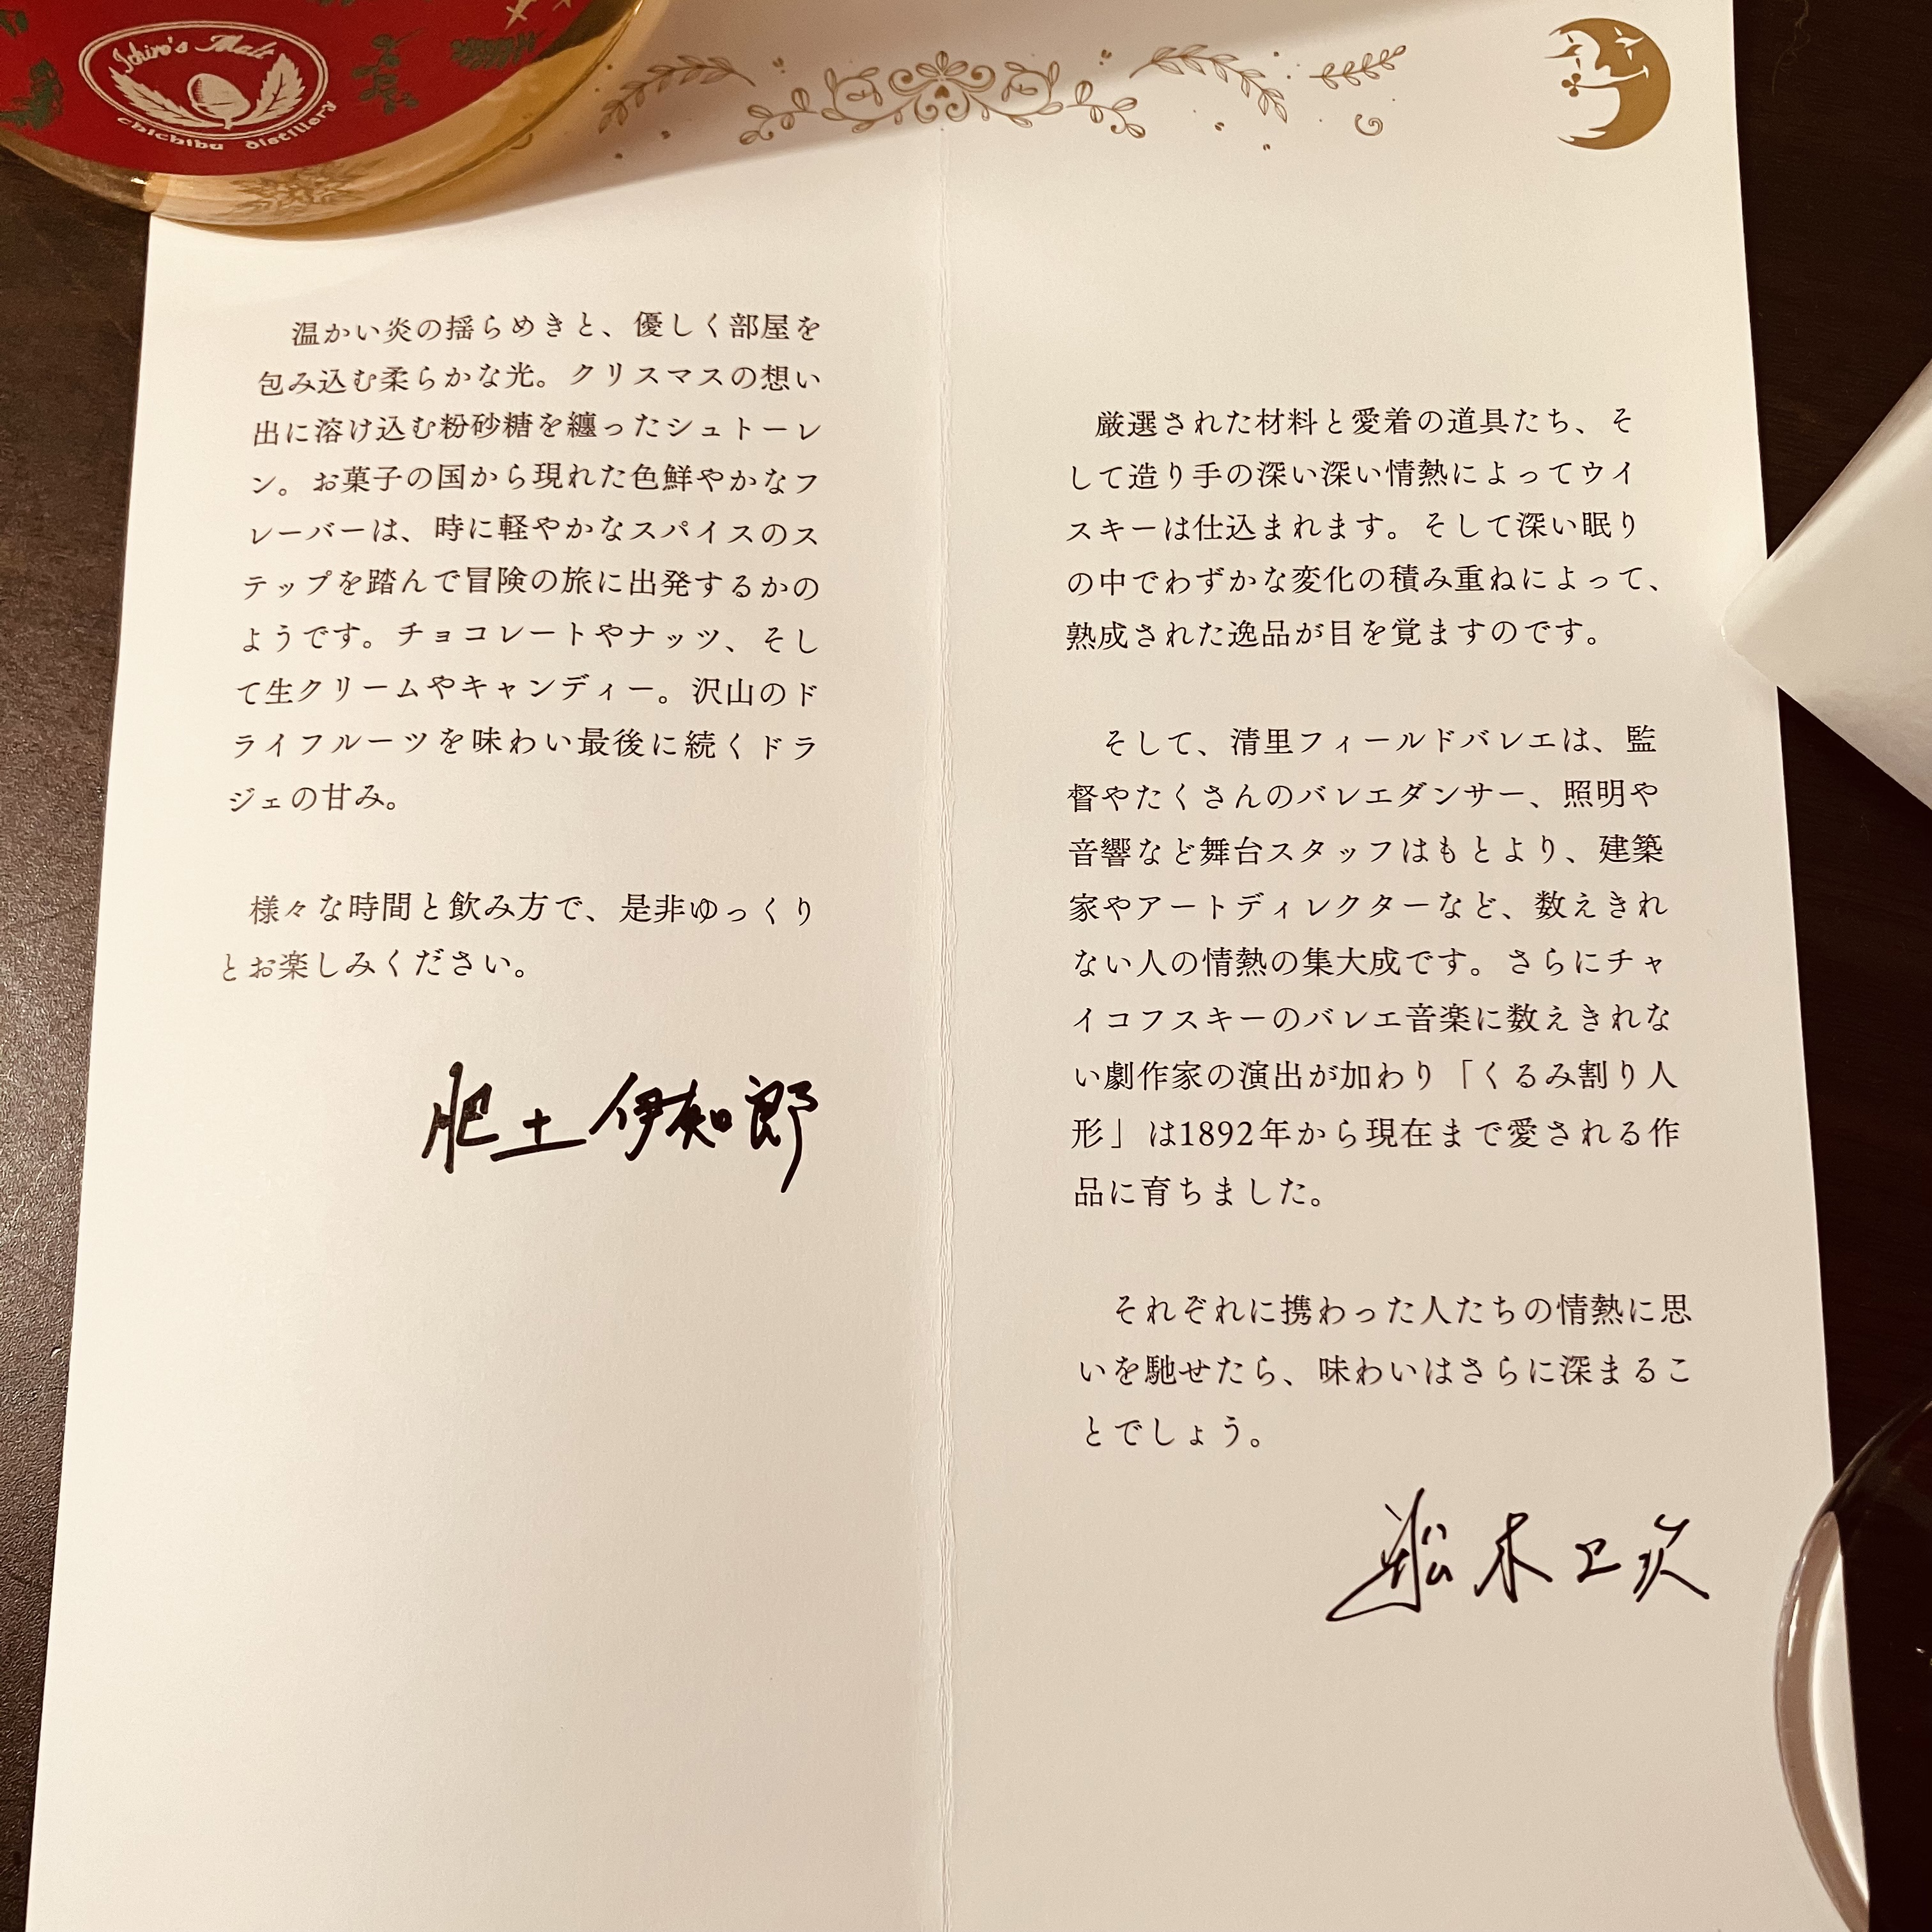 Ichiro's Malt
chichibu distillery
温かい炎の揺らめきと、優しく部屋を
包み込む柔らかな光。クリスマスの想い
出に溶け込む粉砂糖を纏ったシュトーレ
ン。お菓子の国から現れた色鮮やかなフ
レーバーは、時に軽やかなスパイスのス
テップを踏んで冒険の旅に出発するかの
ようです。チョコレートやナッツ、そし
て生クリームやキャンディー。沢山のド
ライフルーツを味わい最後に続くドラ
ジェの甘み。
様々な時間と飲み方で、是非ゆっくり
とお楽しみください。
肥土伊知郎
厳選された材料と愛着の道具たち、そ
して造り手の深い深い情熱によってウイ
スキーは仕込まれます。そして深い眠り
の中でわずかな変化の積み重ねによって、
熟成された逸品が目を覚ますのです。
そして、清里フィールドバレエは、監
督やたくさんのバレエダンサー、照明や
音響など舞台スタッフはもとより、建築
家やアートディレクターなど、数えきれ
ない人の情熱の集大成です。さらにチャ
イコフスキーのバレエ音楽に数えきれな
い劇作家の演出が加わり「くるみ割り人
形」は1892年から現在まで愛される作
品に育ちました。
それぞれに携わった人たちの情熱に思
いを馳せたら、味わいはさらに深まるこ
とでしょう。
舩木上次